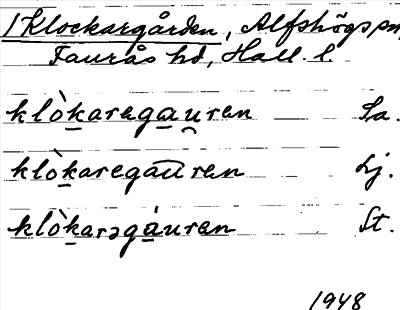 /Klockargården, Alfshögs sn,
Faurås hd, Hall. l.
klòkaregau̯ren Sa.
klòkaregau͡ren Lj.
klòkarəgáuren St.
1948